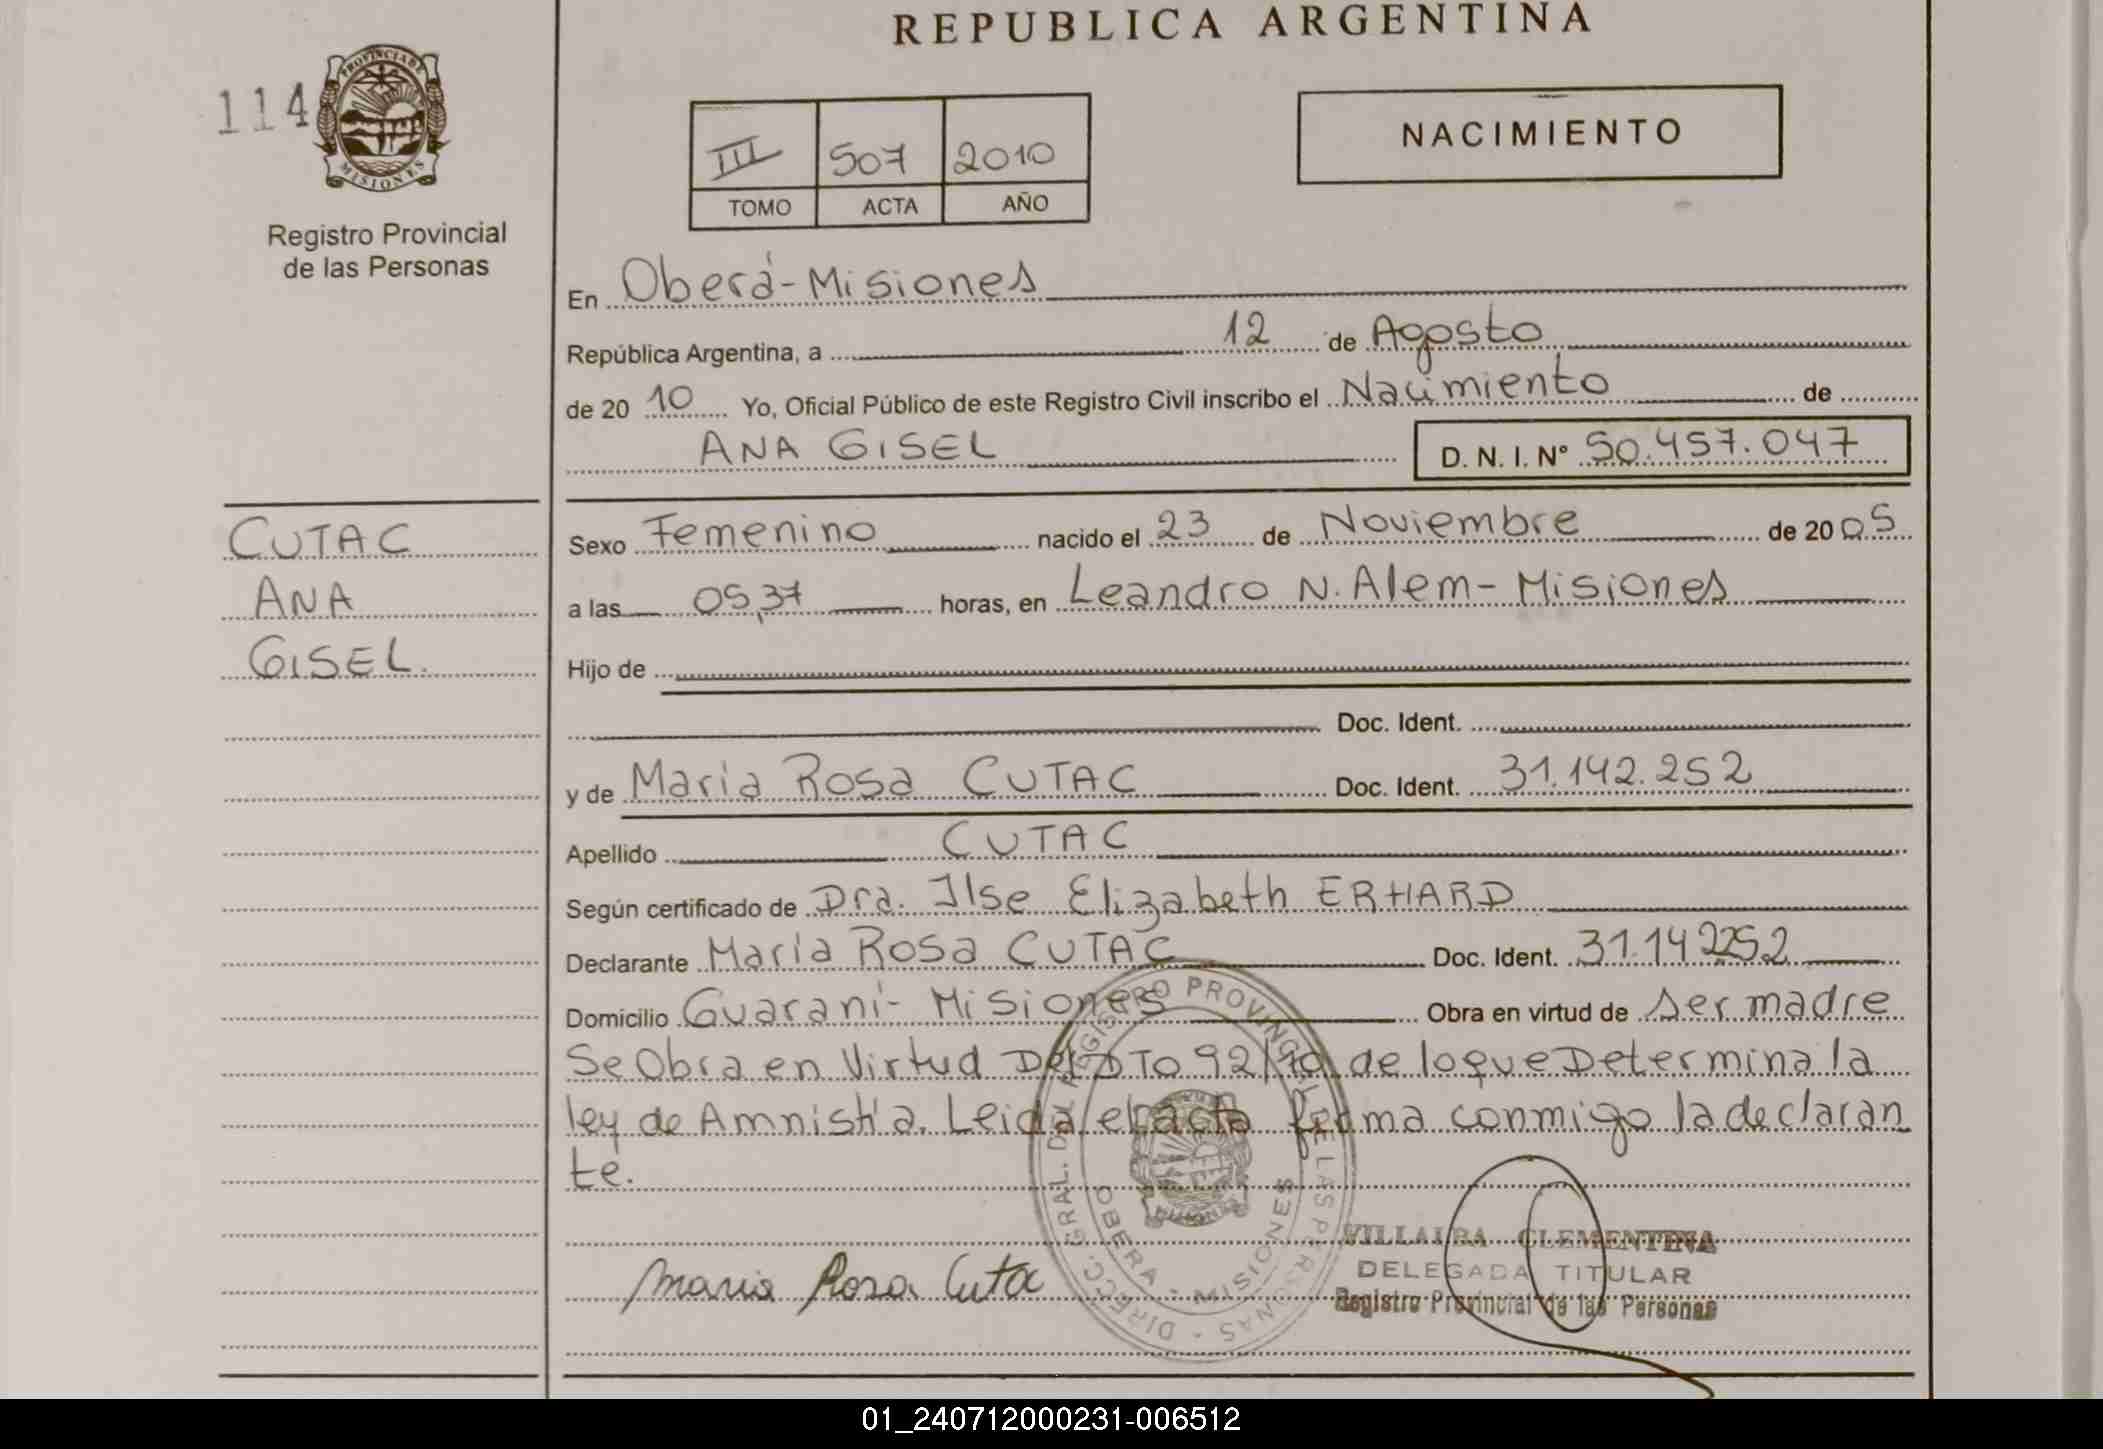 REPUBLICA ARGENTINA
114
PROVINCIA DE
MISIONES
Registro Provincial
de las Personas
III 507 2010
TOMO ACTA AÑO
NACIMIENTO
En Oberá-Misiones
República Argentina, a 12 de Agosto
de 20 10 Yo, Oficial Público de este Registro Civil inscribo el Nacimiento de
ANA GISEL D. N. I. N° 50.457.047
CUTAC
ANA
GISEL.
Sexo Femenino nacido el 23 de Noviembre de 20 05
a las 05,37 horas, en Leandro N. Alem - Misiones
Hijo de
Doc. Ident.
y de Maria Rosa CUTAC Doc. Ident. 31.142.252
Apellido CUTAC
Según certificado de Dra. Ilse Elizabeth ERHARD
Declarante Maria Rosa CUTAC Doc. Ident. 31.142252
Domicilio Guaraní - Misiones Obra en virtud de ser madre
Se Obra en Virtud Del DTO 92/10 de lo que Determina la
ley de Amnistía. Leida el acta firma conmigo la declaran
te.
DIRECC. GRAL. DEL REGISTRO PROVINCIAL DE LAS PERSONAS
OBERA - MISIONES
Maria Rosa Cutac
VILLALBA CLEMENTINA
DELEGADA TITULAR
Registro Provincial de las Personas
01_240712000231-006512